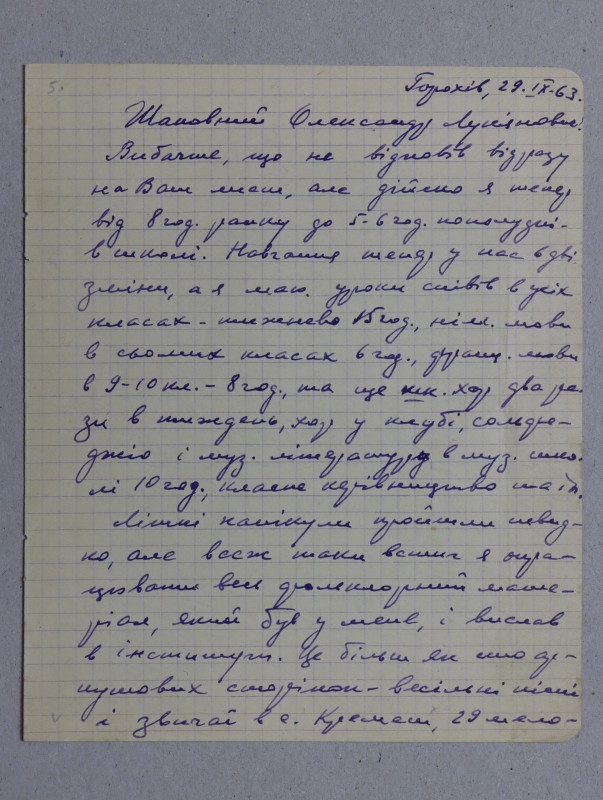 5.
Горохів, 29.IX-63.
Шановний Олександр Лук'янович!
Вибачте, що не відповів відразу
на Ваш лист, але дійсно я тепер
від 8 год. ранку до 5-6 год. пополудні -
в школі. Навчання тепер у нас в дві
зміни, а я маю уроки співів в усіх
класах - тижнево 15 год., нім. мови
в сьомих класах 6 год., франц. мови
в 9-10 кл. - 8 год., та ще шк. хор два ра-
зи в тиждень, хор у клубі, сольфе-
джіо і муз. літературу в муз. шко-
лі 10 год., класне керівництво та ін.
Літні канікули пройшли швид-
ко, але все ж таки встиг я опра-
цювати весь фольклорний мате-
ріал, який був у мене, і вислав
в інститут. Це більш як сто
сторінок - весільні пісні
і звичаї в с. Кремеш, 29 мело-